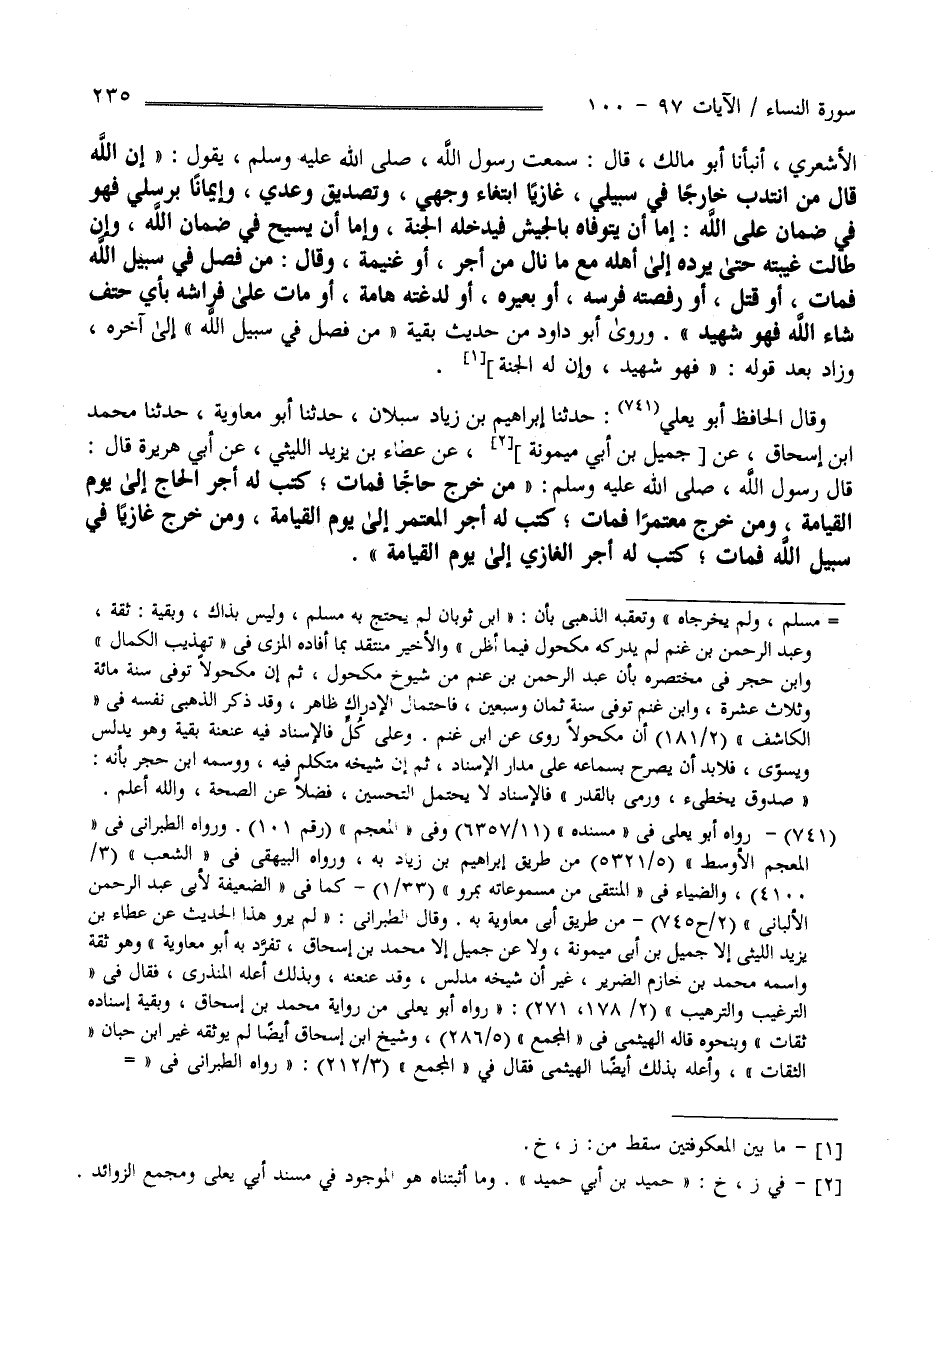 سورة النساء / الآيات ٩٧ - ١٠٠ ٢٣٥
الأشعري ، أنبأنا أبو مالك ، قال : سمعت رسول اللَّه ، صلى الله عليه وسلم ، يقول : « إن اللَّه
قال من انتدب خارجًا في سبيلي ، غازيًا ابتغاء وجهي ، وتصديق وعدي ، وإيمانًا برسلي فهو
في ضمان على اللَّه : إما أن يتوفاه بالجيش فيدخله الجنة ، وإما أن يسيح في ضمان اللَّه ، وإن
طالت غيبته حتىٰ يرده إلىٰ أهله مع ما نال من أجر ، أو غنيمة ، وقال : من فصل في سبيل اللَّه
فمات ، أو قتل ، أو رفصته فرسه ، أو بعيره ، أو لدغته هامة ، أو مات علىٰ فراشه بأي حتف
شاء اللَّه فهو شهيد » . وروىٰ أبو داود من حديث بقية « من فصل في سبيل اللَّه » إلىٰ آخره ،
وزاد بعد قوله : « فهو شهيد ، وإن له الجنة ][١] .
وقال الحافظ أبو يعلي(٧٤١) : حدثنا إبراهيم بن زياد سبلان ، حدثنا أبو معاوية ، حدثنا محمد
ابن إسحاق ، عن [ جميل بن أبي ميمونة ][٢] ، عن عطاء بن يزيد الليثي ، عن أبي هريرة قال :
قال رسول اللَّه ، صلى الله عليه وسلم : « من خرج حاجًا فمات ؛ كتب له أجر الحاج إلىٰ يوم
القيامة ، ومن خرج معتمرًا فمات ؛ كتب له أجر المعتمر إلىٰ يوم القيامة ، ومن خرج غازيًا في
سبيل اللَّه فمات ؛ كتب له أجر الغازي إلىٰ يوم القيامة » .
= مسلم ، ولم يخرجاه » وتعقبه الذهبى بأن : « ابن ثوبان لم يحتج به مسلم ، وليس بذاك ، وبقية : ثقة ،
وعبد الرحمن بن غنم لم يدركه مكحول فيما أظن » والأخير منتقد بما أفاده المزى فى « تهذيب الكمال »
وابن حجر فى مختصره بأن عبد الرحمن بن عنم من شيوخ مكحول ، ثم إن مكحولاً توفى سنة مائة
وثلاث عشرة ، وابن غنم توفى سنة ثمان وسبعين ، فاحتمال الإدراك ظاهر ، وقد ذكر الذهبى نفسه فى «
الكاشف » (١٨١/٢) أن مكحولاً روى عن ابن غنم . وعلى كُلٍّ فالإسناد فيه عنعنة بقية وهو يدلس
ويسوّى ، فلابد أن يصرح بسماعه على مدار الإسناد ، ثم إن شيخه متكلم فيه ، ووسمه ابن حجر بأنه :
« صدوق يخطىء ، ورمى بالقدر » فالإسناد لا يحتمل التحسين ، فضلاً عن الصحة ، والله أعلم .
(٧٤١) - رواه أبو يعلى فى « مسنده » (٦٣٥٧/١١) وفى « المعجم » (رقم ١٠١) . ورواه الطبرانى فى «
المعجم الأوسط » (٥٣٢١/٥) من طريق إبراهيم بن زياد به ، ورواه البيهقى فى « الشعب » (٣/
٤١٠٠) ، والضياء فى « المنتقى من مسموعاته بمرو » (١/٣٣) - كما فى « الضعيفة لأبى عبد الرحمن
الألبانى » (٢/ح٧٤٥) - من طريق أبى معاوية به . وقال الطبرانى : « لم يرو هذا الحديث عن عطاء بن
يزيد الليثى إلا جميل بن أبى ميمونة ، ولا عن جميل إلا محمد بن إسحاق ، تفرَّد به أبو معاوية » وهو ثقة
واسمه محمد بن خازم الضرير ، غير أن شيخه مدلس ، وقد عنعنه ، وبذلك أعله المنذرى ، فقال فى «
الترغيب والترهيب » (٢/ ١٧٨، ٢٧١) : « رواه أبو يعلى من رواية محمد بن إسحاق ، وبقية إسناده
ثقات » وبنحوه قاله الهيثمى فى « المجمع » (٢٨٦/٥) ، وشيخ ابن إسحاق أيضًا لم يوثقه غير ابن حبان «
الثقات » ، وأعله بذلك أيضًا الهيثمى فقال في « المجمع » (٢١٢/٣) : « رواه الطبرانى فى « =
[١] - ما بين المعكوفتين سقط من: ز ، خ.
[٢] - في ز ، خ : « حميد بن أبي حميد » . وما أثبتناه هو الموجود في مسند أبي يعلى ومجمع الزوائد .